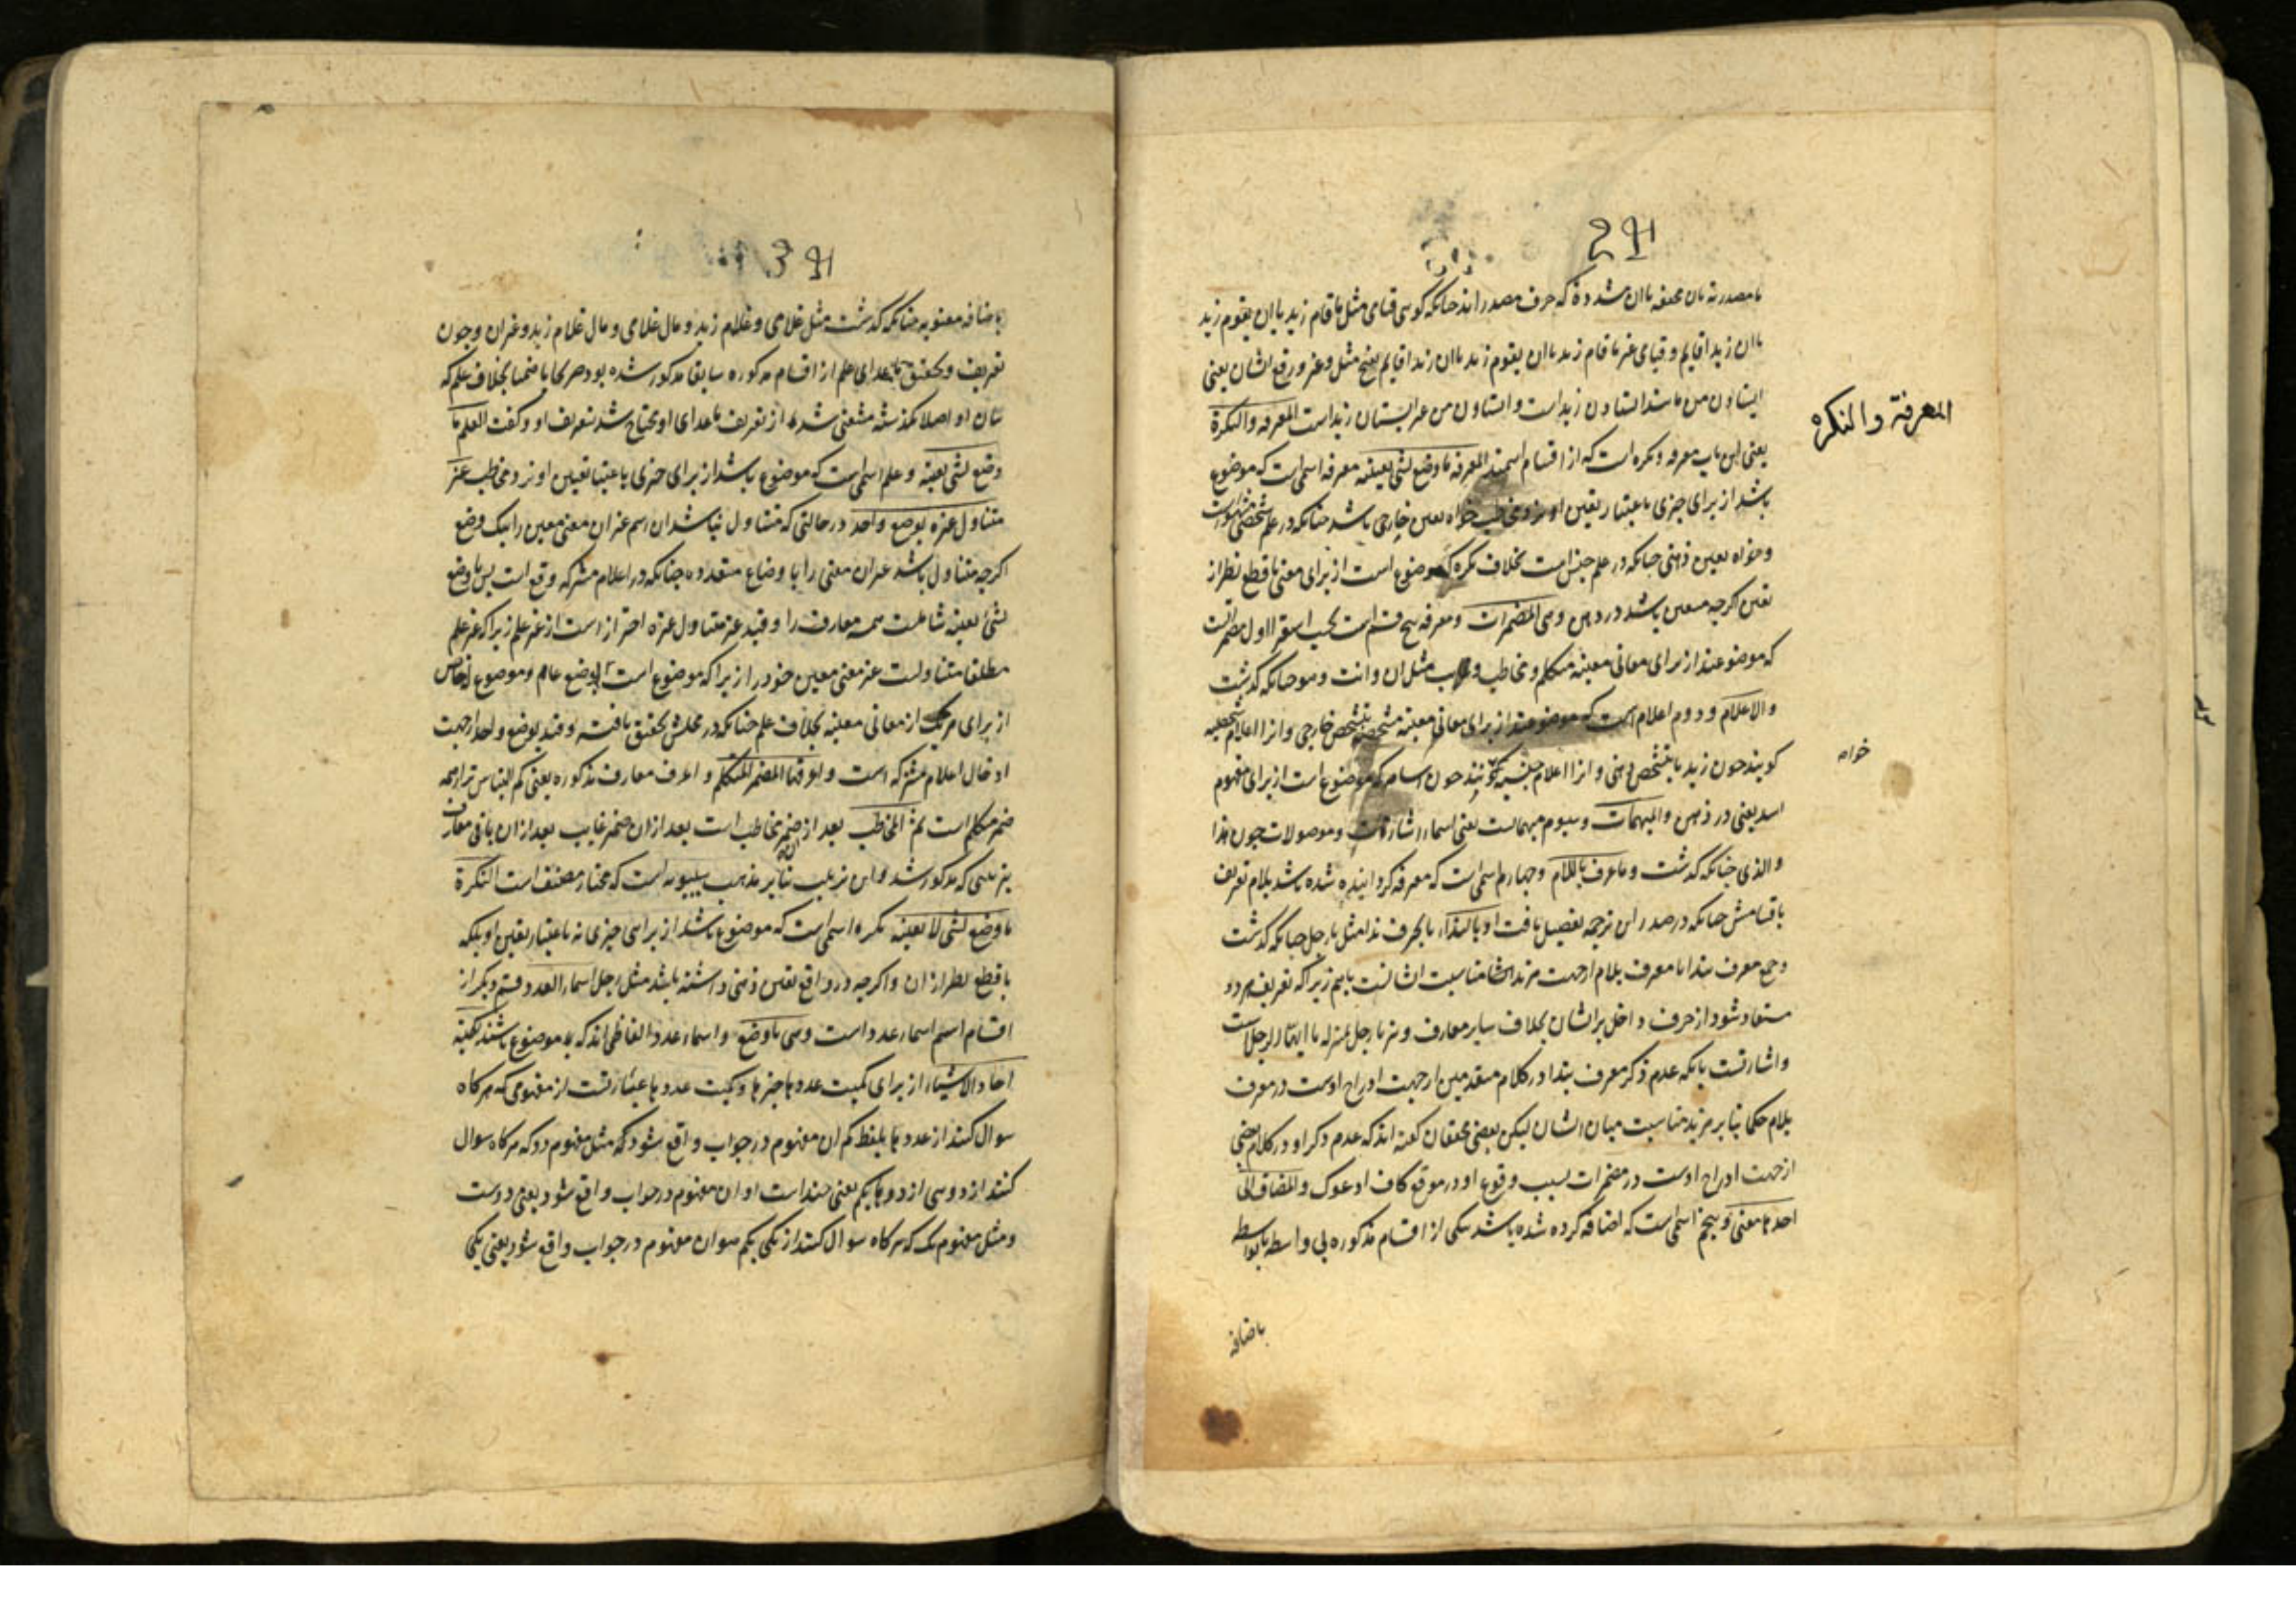 المعرفة والنکره
یا مصدریة یا ان مخففه یا ان مشدده که حرف مصدراند چنانکه کوی قیامی مثل ما قام زید یا ان یقوم زید
یا ان زیدا قایم و قیامی غیر ما قام زید یا ان یقوم زید یا ان زیدا قایم بفتح مثل و غیر و رفع ایشان یعنی
ایستادن من مانند ایستادن زید است و ایستادن من غیر ایستادن زید است المعرفه والنکرة
یعنی این باب معرفه و نکره است که از اقسام اسمند المعرفه ما وضع لشی بعینه معرفه اسمی است که موضوع
باشد از برای چیزی باعتبار تعین او نزد مخاطب خواه تعین خارجی باشد چنانکه در علم شخصی
و خواه تعین ذهنی چنانکه در علم جنس است بخلاف نکره که موضوع است از برای معنی با قطع نظر از
تعین اکرچه معین باشد در ذهن وهی المضمرات و معرفه پنج قسم است بحسب استقرا اول مضمرات
که موضوعند از برای معانی معینه متکلم و مخاطب و غایب مثل ان وانت وهو چنانکه کدشت
والاعلام و دوم اعلام است که موضوعند از برای معانی معینه مشخصه بتشخص خارجی و انرا اعلام شخصیه
کویند چون زید یا بتشخص ذهنی و انرا اعلام جنسیه کویند چون اسامه که موضوع است از برای مفهوم
خواه
اسد یعنی در ذهن والمبهمات و سیوم مبهماتست یعنی اسماء اشارات و موصولات چون هذا
والذی چنانکه کدشت وما عرف باللام و چهارم اسمی است که معرفه کردانیده شده باشد بلام تعریف
باقسامش چنانکه در صدر این ترجمه تفصیل یافت او بالنداء یا بحرف ندا مثل یا رجل چنانکه کدشت
و جمع معرف بندا با معرف بلام از جهت مزید مناسبت ایشانست بایهم زیرا که تعریف هر دو
مستفاد شود از حرف داخل بر ایشان بخلاف سایر معارف و نیز یا رجل بمنزله یا ایها الرجل است
و اشارتست بانکه عدم ذکر معرف بندا در کلام متقدمین از جهت ادراج اوست در معرف
بلام حکما بنابر مزید مناسبت میان ایشان لیکن بعضی محققان کفته اند که عدم ذکر او در کلام بعضی
از جهت ادراج اوست در مضمرات بسبب وقوع او در موقع کاف ادعوک والمضاف الی
احدها معنی و پنجم اسمی است که اضافه کرده شده باشد بیکی از اقسام مذکوره بی واسطه یا بواسطه
باضافه
باضافه معنویه چنانکه کدشت مثل غلامی و غلام زید و مال غلامی و مال غلام زید و غیر ان و چون
تعریف و تحقیق ماعدای علم از اقسام مذکوره سابقا مذکور شده بود صریحا یا ضمنا بخلاف علم که
بیان او اصلا نکذشته مستغنی شد از تعریف ماعدای او و محتاج شد بتعریف او و کفت العلم ما
وضع لشی بعینه و علم اسمی است که موضوع باشد از برای چیزی باعتبار تعین او نزد مخاطب غیر
متناول غیره بوضع واحد در حالتی که متناول نباشد ان اسم غیر ان معنی معین را بیک وضع
اکرچه متناول باشد غیر ان معنی را باوضاع متعدده چنانکه در اعلام مشترکه واقع است پس ما وضع
لشئ بعینه شاملست همه معارف را و قید غیر متناول غیره احتراز است از غیر علم زیرا که غیر علم
مطلقا متناولست غیر معنی معین خود را زیرا که موضوع است بوضع عام و موضوع له خاص
از برای هر یک از معانی معینه بخلاف علم چنانکه در محلش تحقیق یافته و قید بوضع واحد از جهت
ادخال اعلام مشترکه است واعرفها المضمر المتکلم و اعرف معارف مذکوره یعنی کم التباس تر از همه
ضمیر متکلم است ثم المخاطب بعد از ضمیر مخاطب است بعد ازان ضمیر غایب بعد ازان باقی معارف
بترتیبی که مذکور شد و این ترتیب بنابر مذهب سیبویه است که مختار مصنف است النکرة
ما وضع لشی لا بعینه نکره اسمی است که موضوع باشد از برای چیزی نه باعتبار تعین او بلکه
با قطع نظر از ان و اکرچه در واقع تعین ذهنی داشته باشد مثل رجل اسماء العدد قسم دیکر از
اقسام اسم اسماء عدد است وهی ما وضع و اسماء عدد الفاظی اند که موضوع باشند لکمیة
احاد الاشیاء از برای کمیت عددها چیزها و کمیت عددها عبارتست از مفهومی که هرکاه
سوال کنند از عددها بلفظ کم ان مفهوم در جواب واقع شود مثل مفهوم دو که هرکاه سوال
کنند از دوسی از دوها بکم یعنی چند است او ان مفهوم در جواب واقع شود یعنی دوست
و مثل مفهوم یک که هرکاه سوال کنند از یکی بکم هو ان مفهوم در جواب واقع شود یعنی یکی